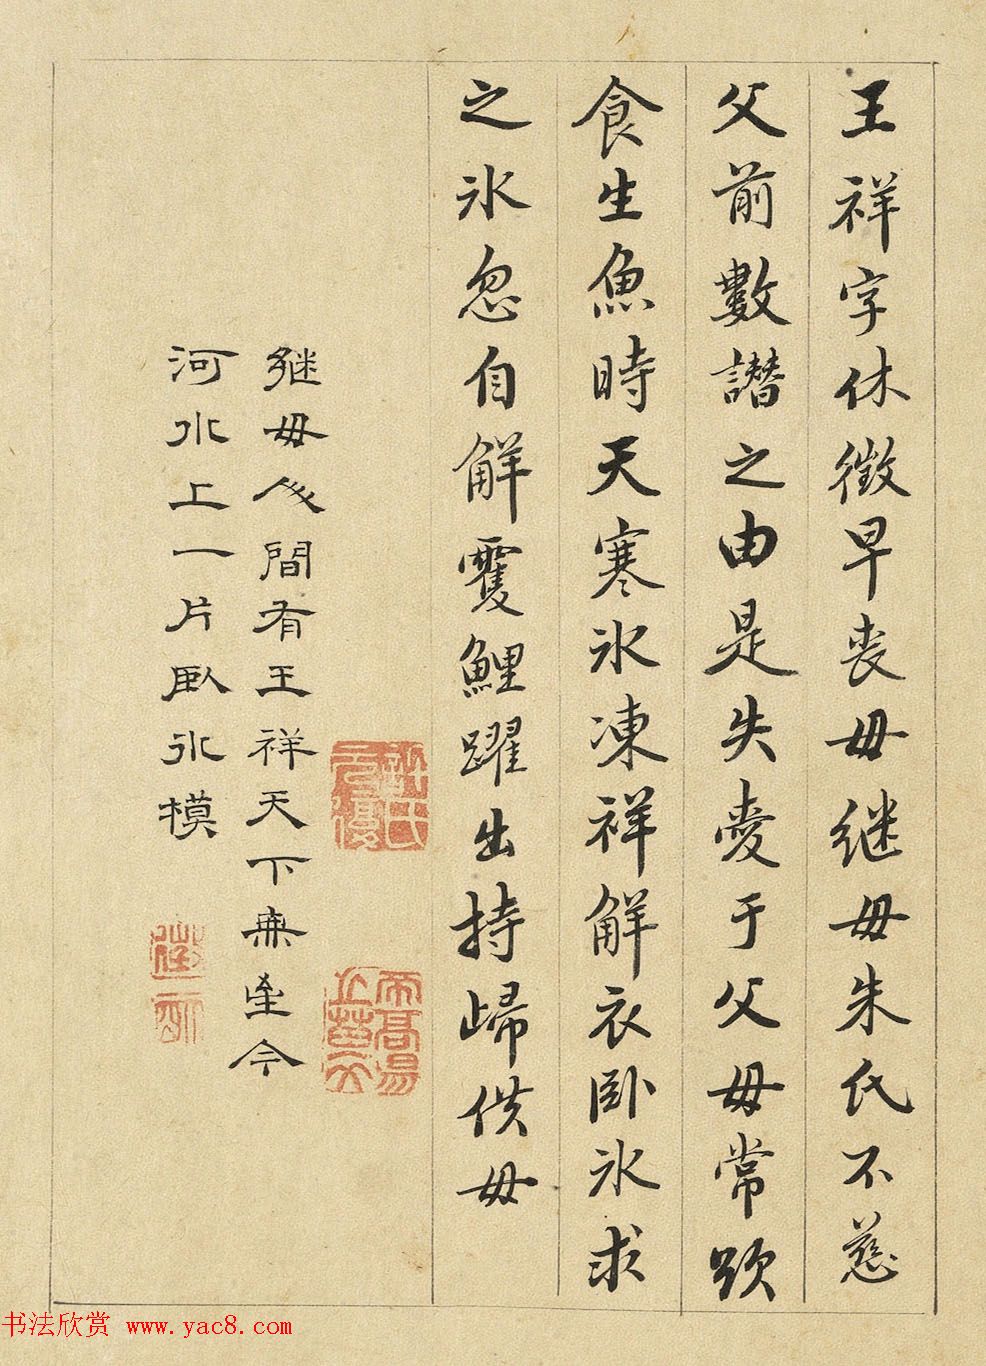 王祥字休徵早丧母继母朱氏不慈
父前數譖之由是失愛于父母常欲
食生魚時天寒氷凍祥解衣卧氷求
之氷忽自解雙鯉躍出持歸供母
继母人間有王祥天下無至今
河水上一片臥氷模
书法欣赏 www.yac8.com